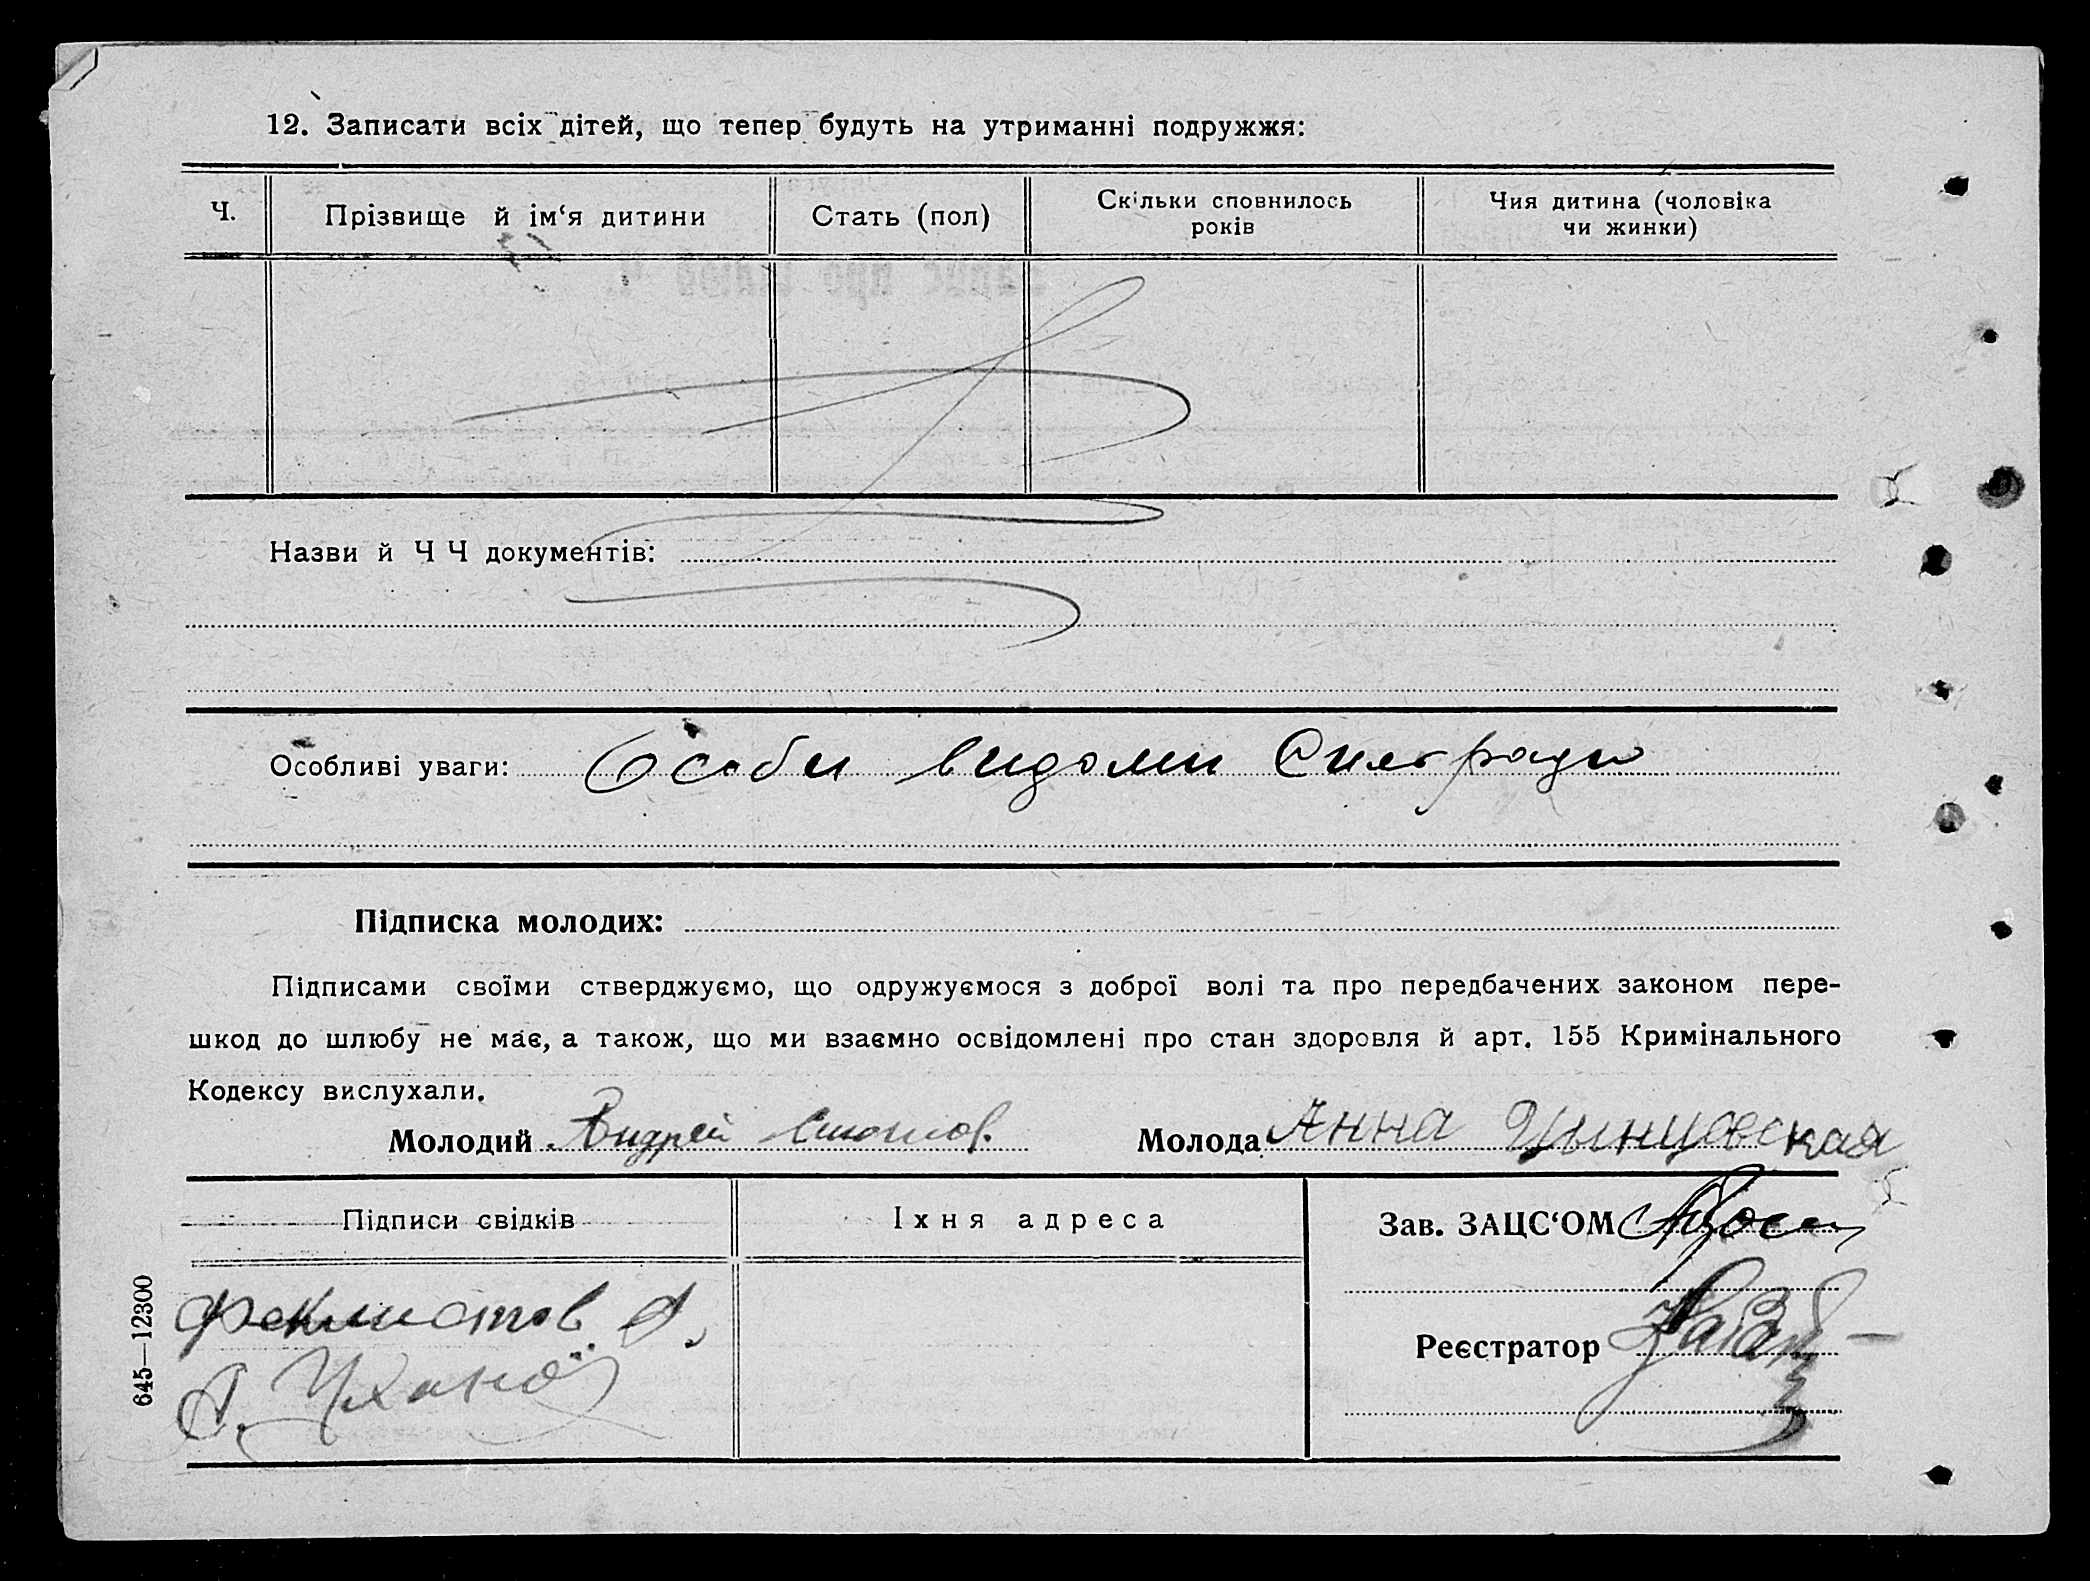 12. Записати всіх дітей, що тепер будуть на утриманні подружжя:
Ч.
Прізвище й ім‘я дитини
Стать (пол)
Скільки сповнилось
років
Чия дитина (чоловіка
чи жинки)
Назви й Ч Ч документів:
Особливі уваги: Особи видоми
Підписка молодих:
Підписами своїми стверджуємо, що одружуємося з доброї волі та про передбачених законом пере-
шкод до шлюбу не має, а також, що ми взаємно освідомлені про стан здоровля й арт. 155 Кримінального
Кодексу вислухали.
Молодий Андрей
Молода Анна
Підписи свідків
Їхня адреса
Зав. ЗАЦС‘ОМ
Феклистов
Реєстратор
645—12300